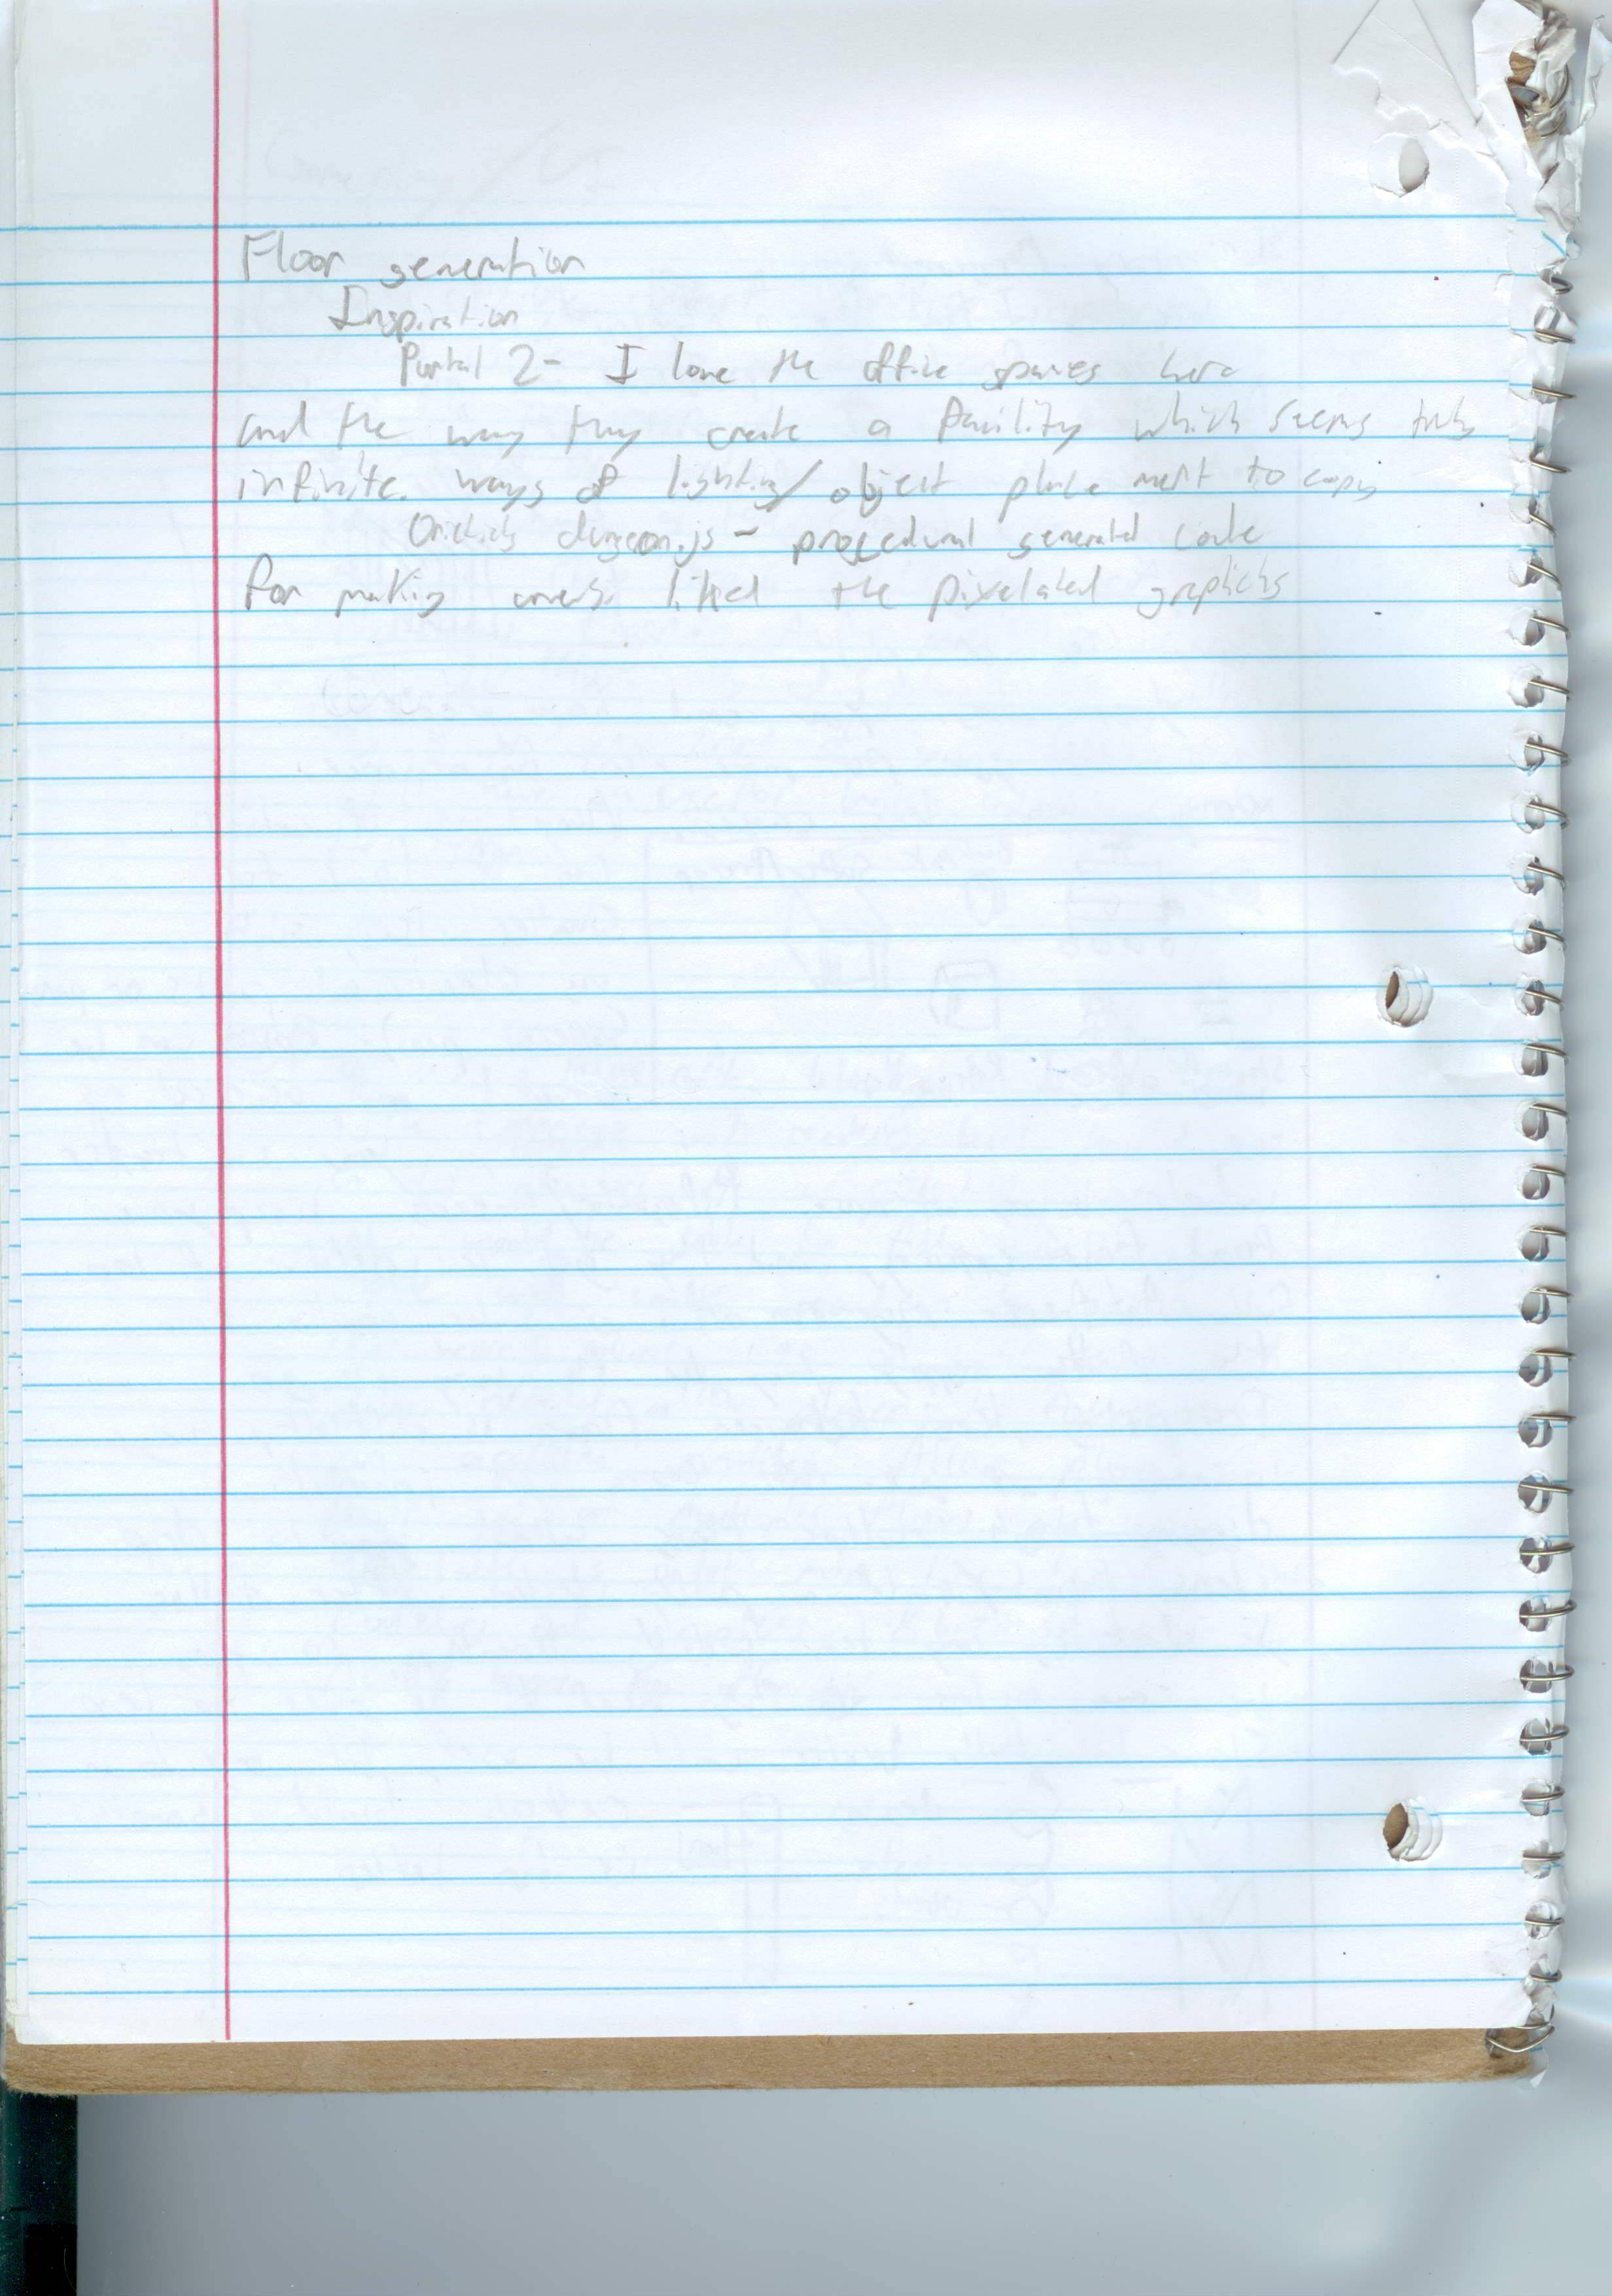 Floor generation
Inspiration
Portal 2- I love the office spaces here
and the way they create a facility which seems truly
infinite. ways of lighting/object placement to copy
dungeon.js - procedural generated code
for making liked the pixelated graphics